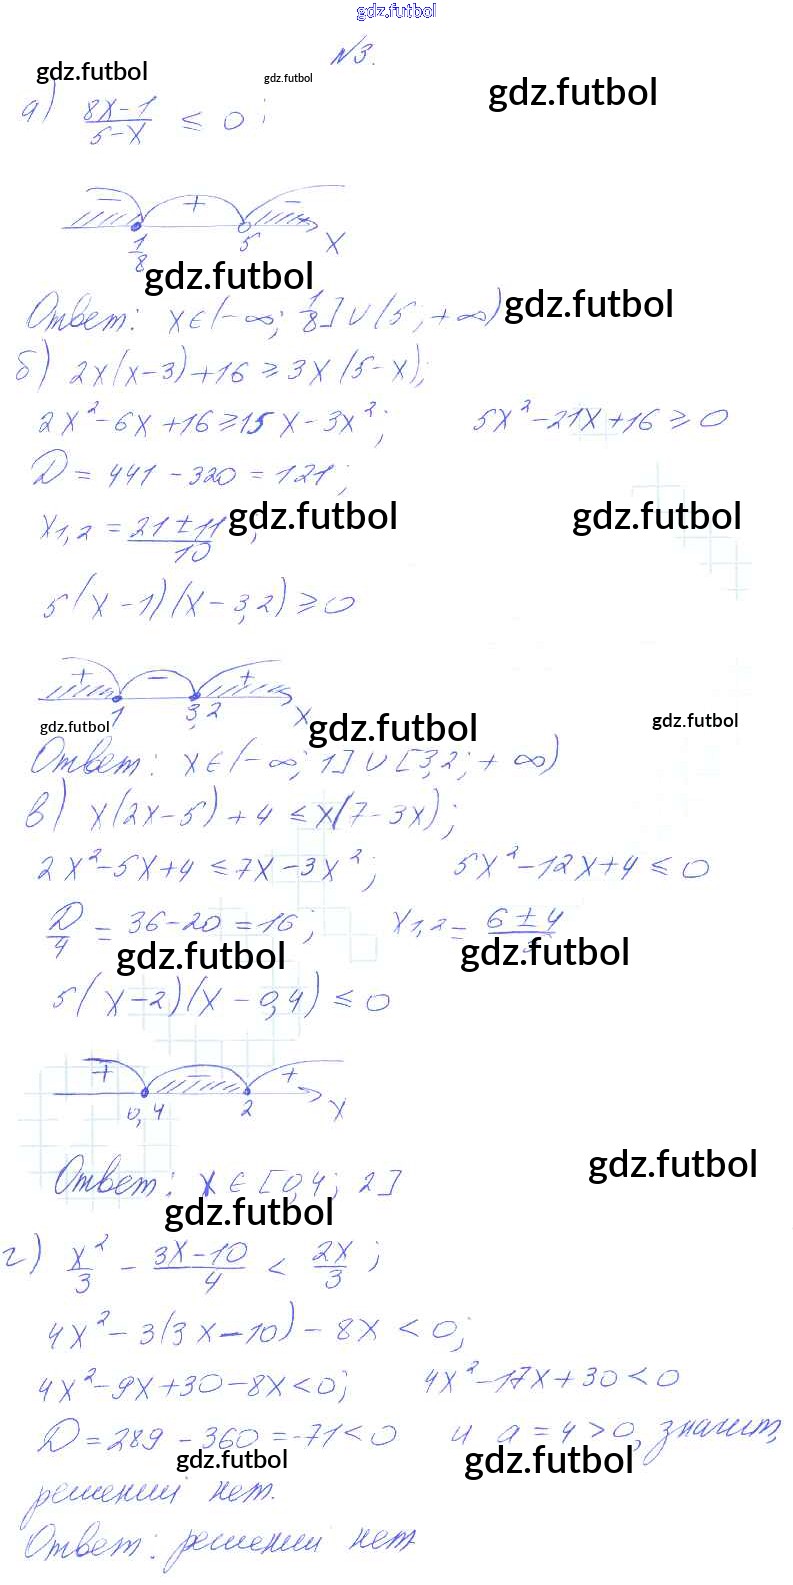 gdz.futbol
№3.
gdz.futbol gdz.futbol gdz.futbol
а) (8x-1)/(5-x) ≤ 0;
− + −
1/8 5 x
gdz.futbol
Ответ: x∈(-∞; 1/8]∪(5; +∞) gdz.futbol
б) 2x(x-3)+16≥3x(5-x);
2x²-6x+16≥15x-3x²; 5x²-21x+16≥0
D=441-320=121;
x1,2 = (21±11)/10; gdz.futbol gdz.futbol
5(x-1)(x-3,2)≥0
+ − +
1 3,2 x
gdz.futbol gdz.futbol gdz.futbol
Ответ: x∈(-∞; 1]∪[3,2; +∞)
в) x(2x-5)+4≤x(7-3x);
2x²-5x+4≤7x-3x²; 5x²-12x+4≤0
D/4 = 36-20=16; x1,2 = (6±4)/5
gdz.futbol gdz.futbol
5(x-2)(x-0,4)≤0
+ − +
0,4 2 x
gdz.futbol
Ответ: x∈[0,4; 2]
gdz.futbol
г) x²/3 - (3x-10)/4 < 2x/3;
4x²-3(3x-10)-8x<0;
4x²-9x+30-8x<0; 4x²-17x+30<0
D=289-360=-71<0 и a=4>0, значит,
gdz.futbol gdz.futbol
решений нет.
Ответ: решений нет